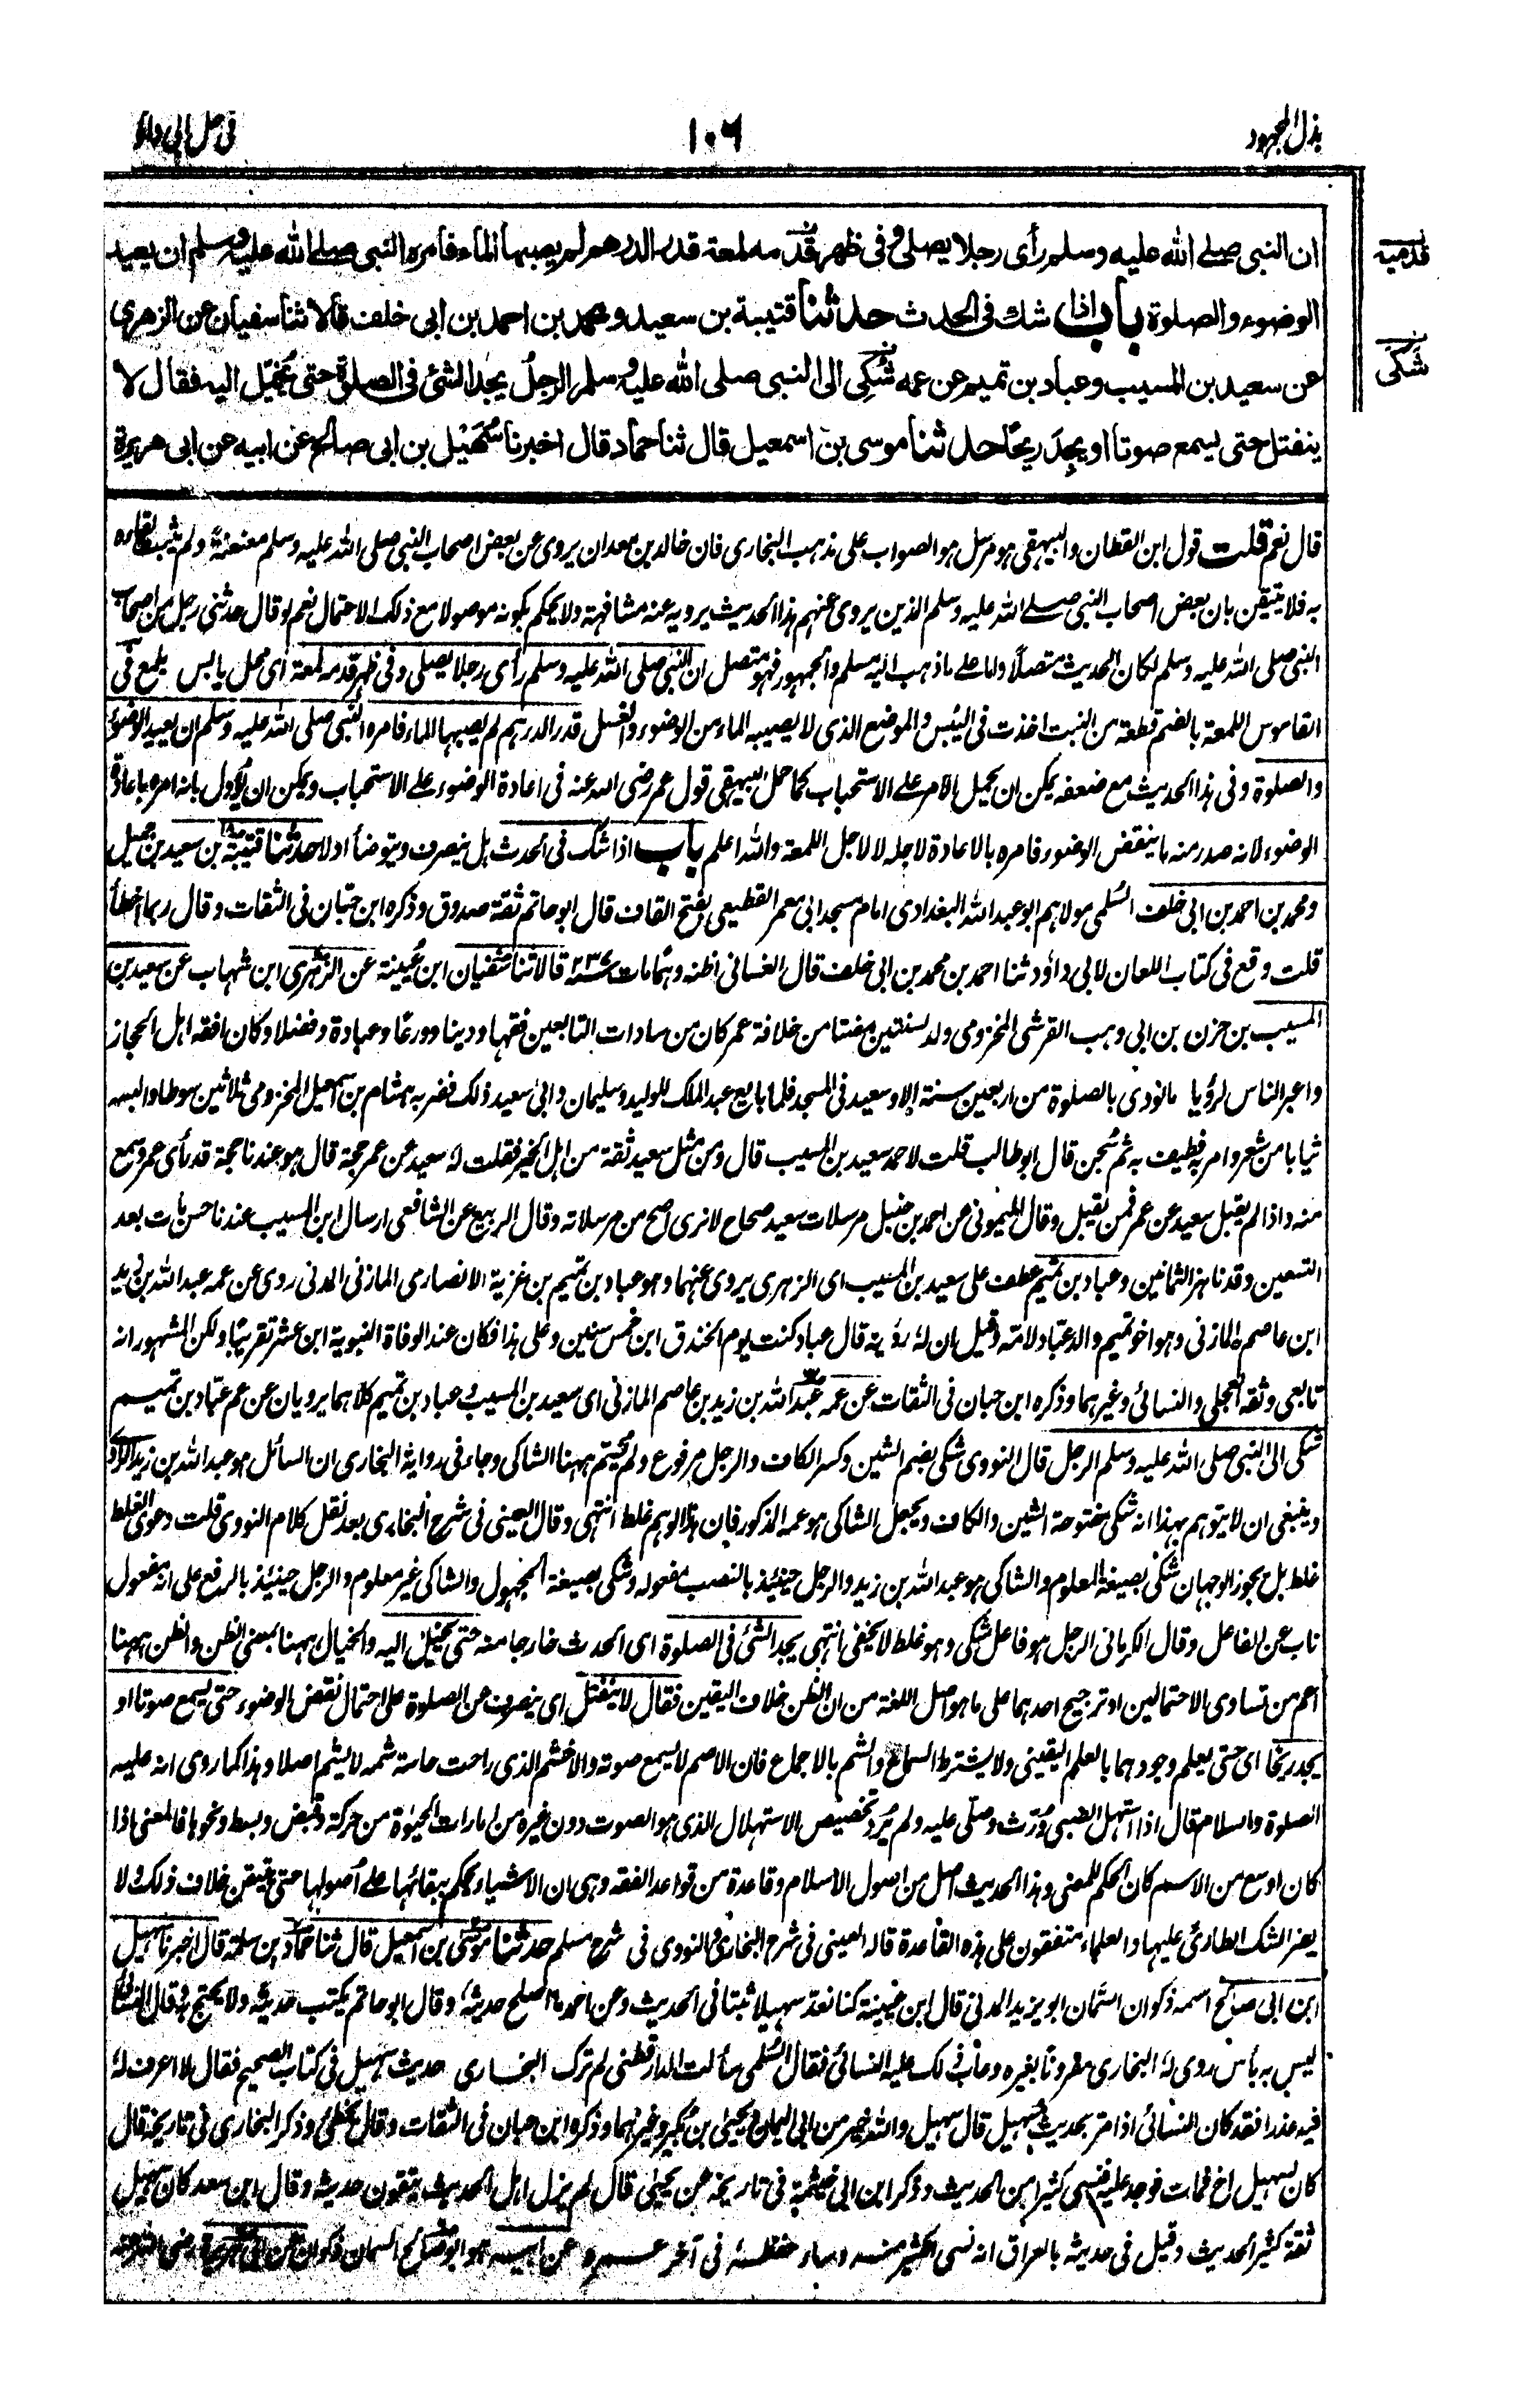 بذل المجهود
١٠٦
في حل ابي داؤد
ان النبي صلى الله عليه وسلم رأى رجلا يصلي وفي ظهر قدمه لمعة قدر الدرهم لم يصبها الماء فامره النبي صلى الله عليه وسلم ان يعيد
قدميه
الوضوء والصلوة باب اذا شك في الحدث حدثنا قتيبة بن سعيد ومحمد بن احمد بن ابي خلف قالا ثنا سفيان عن الزهري
عن سعيد بن المسيب وعباد بن تميم عن عمه شُكِي الى النبي صلى الله عليه وسلم الرجلُ يجد الشئ في الصلوة حتى يُخَيّل اليه فقال لا
شكى
ينفتل حتى يسمع صوتا او يجدَ ريحًا حدثنا موسى بن اسمعيل قال ثنا حماد قال اخبرنا سُهَيل بن ابي صالح عن ابيه عن ابي هريرة
قال نعم قلت قول ابن القطان والبيهقي هو مرسل هو الصواب على مذهب البخاري فان خالد بن معدان يروي عن بعض اصحاب النبي صلى الله عليه وسلم معنعنةً ولم يثبت لقاءه
به فلا يتيقن بان بعض اصحاب النبي صلى الله عليه وسلم الذين يروي عنهم هذا الحديث يرويه عنه مشافهة ولا يحكم بكونه موصولا مع ذلك الاحتمال نعم لو قال حدثني رجل من اصحاب
النبي صلى الله عليه وسلم لكان الحديث متصلًا واما على ما ذهب اليه مسلم والجمهور فهو متصل ان النبي صلى الله عليه وسلم رأى رجلا يصلي وفي ظهر قدمه لمعة اى محل يابس يلمع في
القاموس اللمعة بالضم قطعة من النبت اخذت في اليُبس والموضع الذي لا يصيبه الماء من الوضوء والغسل قدر الدرهم لم يصبها الماء فامره النبي صلى الله عليه وسلم ان يعيد الوضوء
والصلوة وفي هذا الحديث مع ضعفه يمكن ان يحمل الامر على الاستحباب كما حمل البيهقي قول عمر رضي الله عنه في اعادة الوضوء على الاستحباب ويمكن ان يُأوّل بانه امره باعادة
الوضوء لانه صدر منه ما ينقض الوضوء فامره بالاعادة لاجله لا لاجل اللمعة والله اعلم باب اذا شك في الحدث بل ينصرف ويتوضأ او لا حدثنا قتيبة بن سعيد بن جميل
ومحمد بن احمد بن ابي خلف السُلمي مولاهم ابو عبد الله البغدادي امام مسجد ابي معمر القطيعي بفتح القاف قال ابو حاتم ثقة صدوق وذكره ابن حبّان في الثقات وقال ربما اخطأ
قلت وقع في كتاب اللعان لابي داؤد ثنا احمد بن محمد بن ابي خلف قال الغساني اظنه وهمًا مات ٢٣٧ قالا ثنا سفيان ابن عُيينة عن الزهري ابن شهاب عن سعيد بن
المسيب بن حزن بن ابي وهب القرشي المخزومي ولد لسنتين مضتا من خلافة عمر كان من سادات التابعين فقها ودينا وورعًا وعبادة وفضلا وكان افقه اهل الحجاز
واعبر الناس لرؤيا ما نودي بالصلوة من اربعين سنة الا وسعيد في المسجد فلما بايع عبد الملك للوليد وسليمان وابى سعيد ذلك فضربه هشام بن اسمعيل المخزومي ثلاثين سوطا والبسه
ثيابا من شعر وامر به فطيف به ثم سُجن قال ابو طالب قلت لاحمد سعيد بن المسيب قال ومن مثل سعيد ثقة من اهل الخير فقلت له سعيد عن عمر حجة قال هو عندنا حجة قد رأى عمر وسمع
منه واذا لم يقبل سعيد عن عمر فمن يقبل وقال الميموني عن احمد بن حنبل مرسلات سعيد صحاح لا نرى اصح من مرسلاته وقال الربيع عن الشافعي ارسال ابن المسيب عندنا حسن مات بعد
التسعين وقد ناهز الثمانين وعباد بن تميم عطف على سعيد بن المسيب اى الزهري يروي عنهما وهو عباد بن تميم بن غزية الانصاري المازني المدني روى عن عمه عبد الله بن زيد
ابن عاصم المازني وهو اخو تميم والد عبّاد لامه وقيل ان له رؤية قال عباد كنت يوم الخندق ابن خمس سنين وعلى هذا فكان عند الوفاة النبوية ابن عشر تقريبًا ولكن المشهور انه
تابعي وثقه العجلي والنسائي وغيرهما وذكره ابن حبان في الثقات عن عمه عبد الله بن زيد بن عاصم المازني اى سعيد بن المسيب وعباد بن تميم كلاهما يرويان عن عم عبّاد بن تميم
شكي الى النبي صلى الله عليه وسلم الرجل قال النووي شكي بضم الشين وكسر الكاف والرجل مرفوع ولم يسم ههنا الشاكي وجاء في رواية البخاري ان السائل هو عبد الله بن زيد الراوي
وينبغي ان لا يتوهم بهذا انه شكى مفتوحة الشين والكاف ويجعل الشاكي هو عمه المذكور فان هذا الوهم غلط انتهى وقال العيني في شرح البخاري بعد نقل كلام النووي قلت دعوى الغلط
غلط بل يجوز الوجهان شكى بصيغة المعلوم والشاكي هو عبد الله بن زيد والرجل حينئذ بالنصب مفعوله وشكي بصيغة المجهول والشاكي غير معلوم والرجل حينئذ بالرفع على انه مفعول
ناب عن الفاعل وقال الكرماني الرجل هو فاعل شكى وهو غلط لا يخفى انتهى يجد الشئ في الصلوة اى الحدث خارجا منه حتى يخيل اليه والخيال ههنا بمعنى الظن والظن ههنا
اعم من تساوى الاحتمالين او ترجيح احدهما على ما هو اصل اللغة من ان الظن خلاف اليقين فقال لا ينفتل اى ينصرف عن الصلوة على احتمال نقض الوضوء حتى يسمع صوتا او
يجد ريحًا اى حتى يعلم وجودهما بالعلم اليقيني ولا يشترط السماع والشم بالاجماع فان الاصم لا يسمع صوته والاخشم الذي راحت حاسة شمه لا يشم اصلا وهذا كما روي انه عليه
الصلوة والسلام قال اذا استهل الصبي وُرّث وصُلّى عليه ولم يُرد تخصيص الاستهلال الذي هو الصوت دون غيره من امارات الحيوة من حركة وقبض وبسط ونحوها فالمعنى اذا
كان اوسع من الاسم كان الحكم للمعنى وهذا الحديث اصل من اصول الاسلام وقاعدة من قواعد الفقه وهي ان الاشياء يحكم ببقائها على اُصولها حتى يتيقن خلاف ذلك ولا
يضر الشك الطارئ عليها والعلماء متفقون على هذه القاعدة قاله العيني في شرح البخاري والنووي في شرح مسلم حدثنا موسى بن اسمعيل قال ثنا حماد بن سلمة قال اخبرنا سهيل
ابن ابي صالح اسمه ذكوان السمان ابو يزيد المدني قال ابن عيينة كنا نعد سهيلا ثبتا في الحديث وعن احمد ما اصلح حديثه وقال ابو حاتم يكتب حديثه ولا يحتج به وقال النسائي
ليس به بأس روى له البخاري مقرونا بغيره وعاب ذلك عليه النسائي فقال السُلمي سألت الدارقطني لم ترك البخاري حديث سهيل في كتاب الصحيح فقال لا اعرف له
فيه عذرا فقد كان النسائي اذا مر بحديث سهيل قال سهيل والله خير من ابي اليمان ويحيى بن بُكير وغيرهما وذكره ابن حبان في الثقات وقال يخطئ وذكر البخاري في تاريخه قال
كان لسهيل اخ فمات فوجد عليه فنسي كثيرا من الحديث وذكر ابن ابي خيثمة في تاريخه عن يحيى قال لم يزل اهل الحديث يتقون حديثه وقال ابن سعد كان سهيل
ثقة كثير الحديث وقيل في حديثه بالعراق انه نسي الكثير منه وساء حفظه في آخر عمره عن ابيه هو ابو صالح السمان ذكوان عن ابي هريرة رضي الله عنه